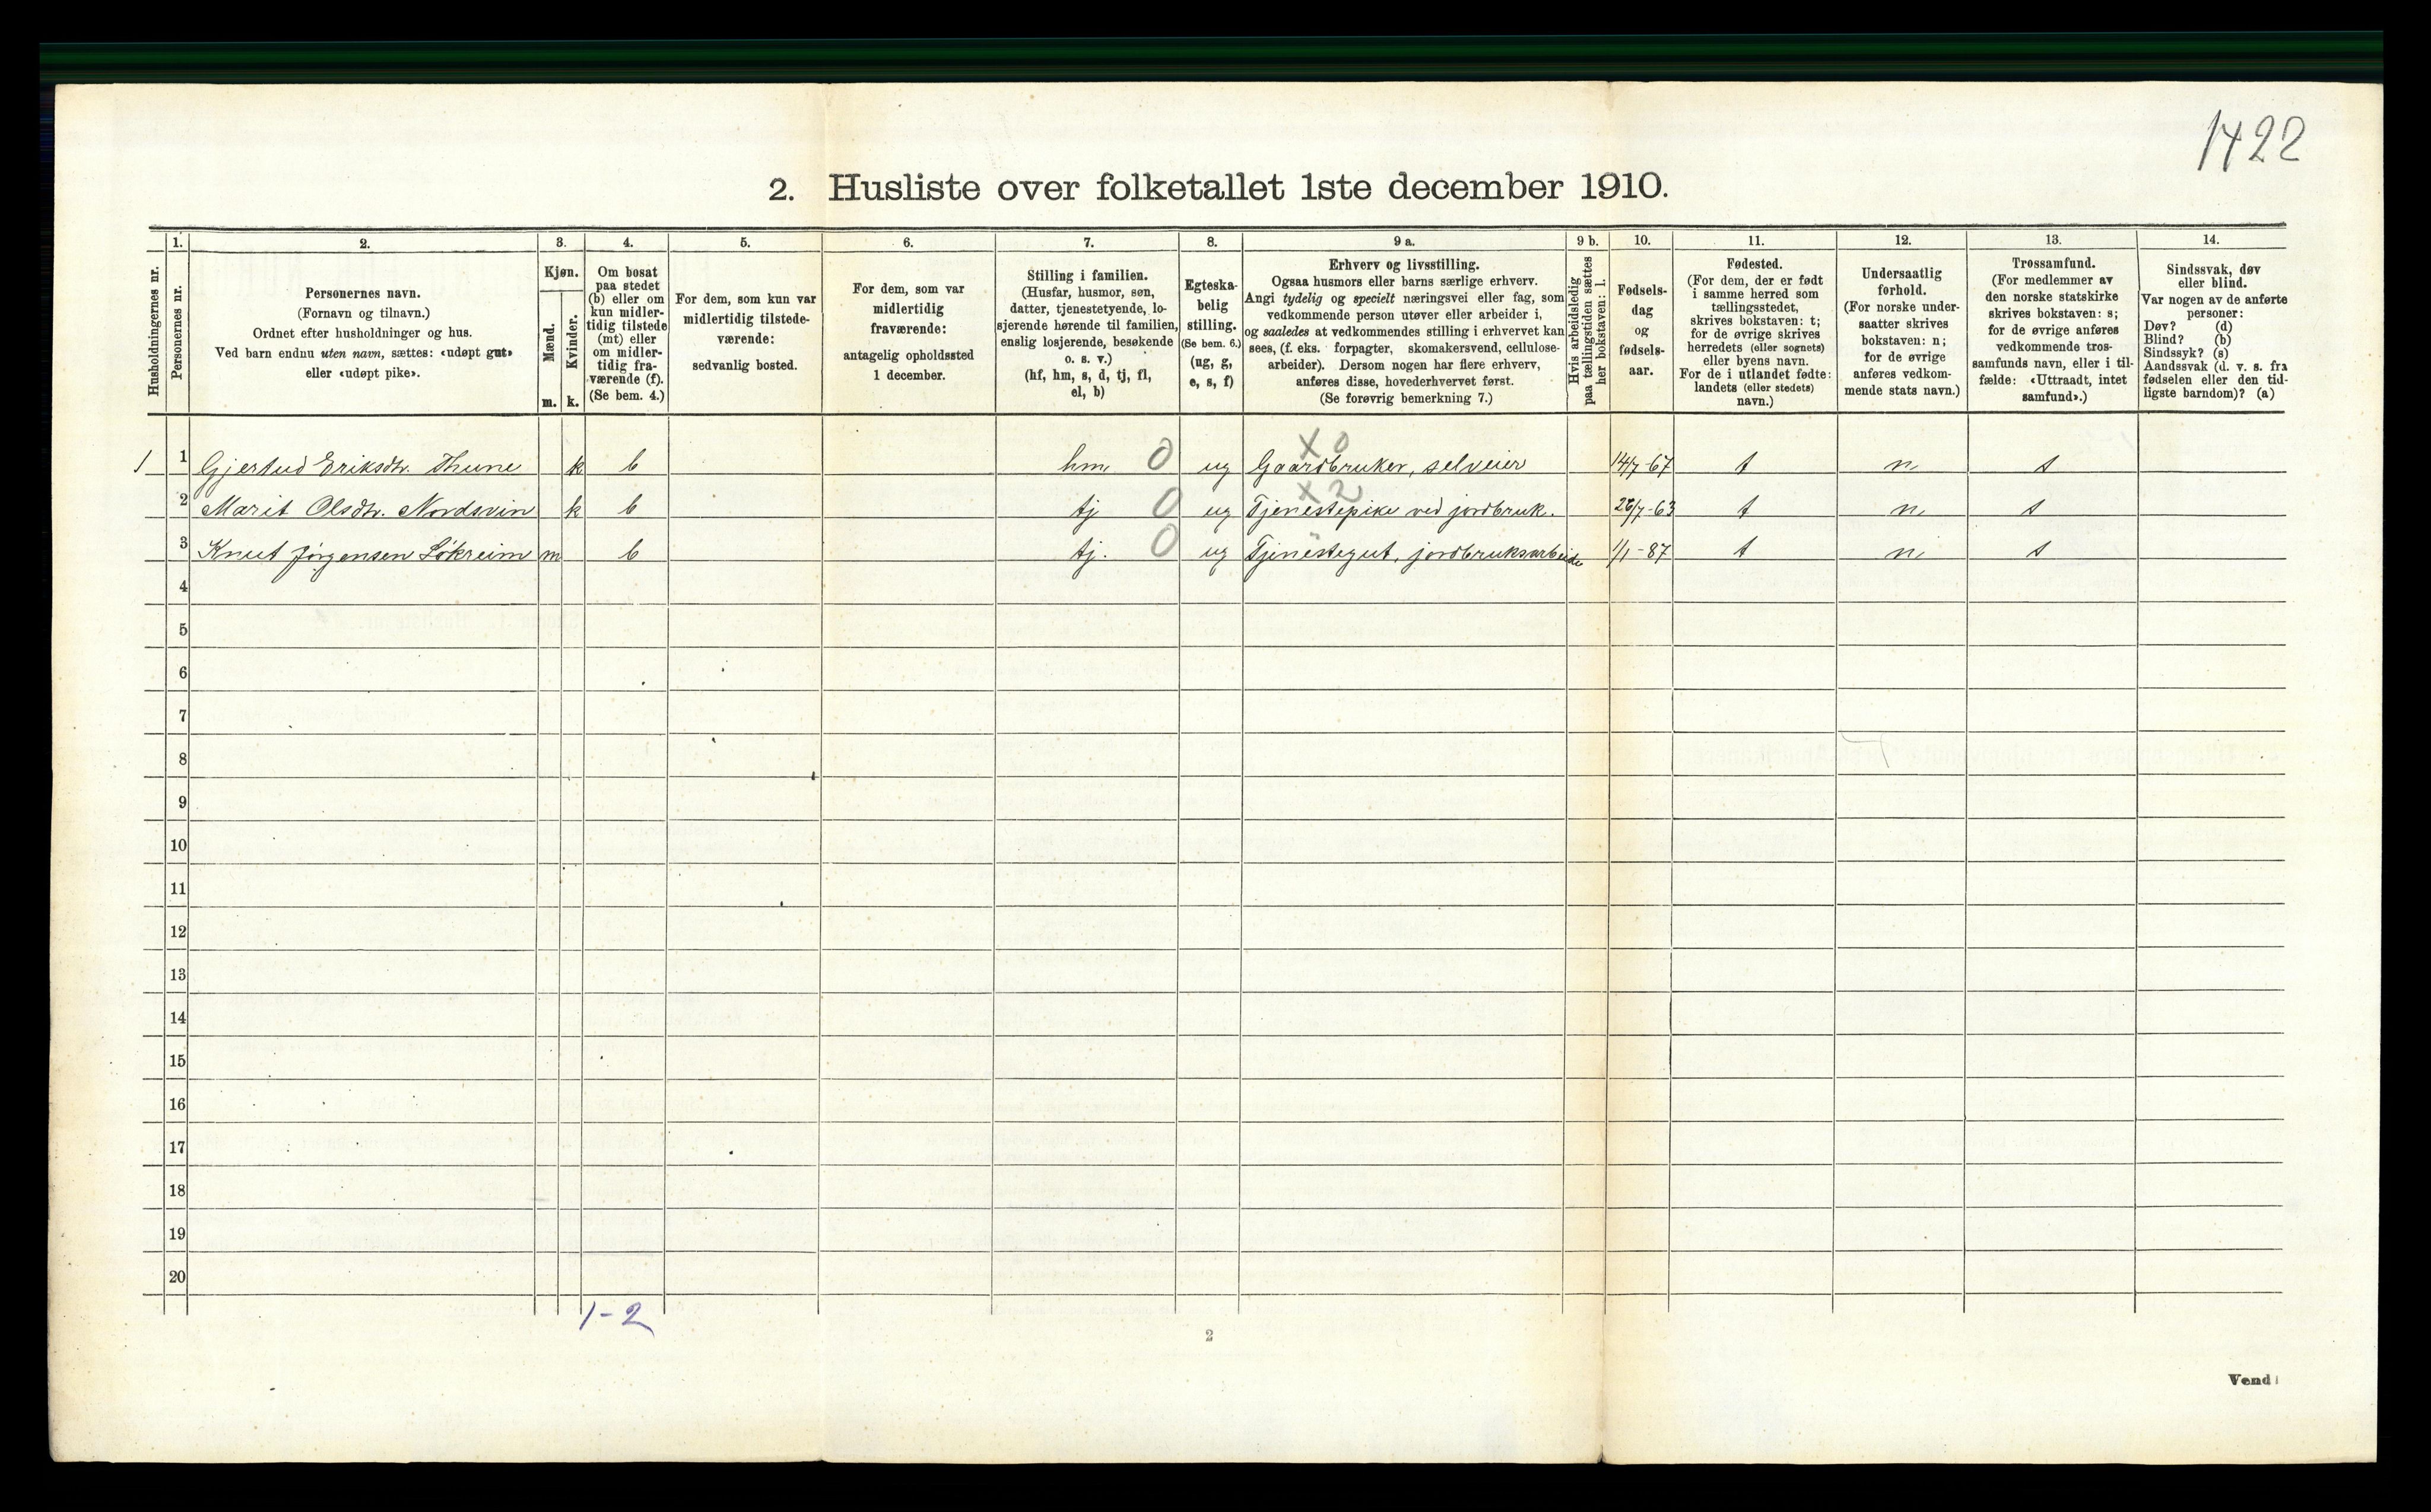 1422
2. Husliste over folketallet 1ste december 1910.
Husholdningernes nr.
1. Personernes nr.
2. Personernes navn.
(Fornavn og tilnavn.)
Ordnet efter husholdninger og hus.
Ved barn endnu uten navn, sættes: «udøpt gut»
eller «udøpt pike».
3. Kjøn.
Mænd. Kvinder.
m. k.
4. Om bosat
paa stedet
(b) eller om
kun midler-
tidig tilstede
(mt) eller
om midler-
tidig fra-
værende (f).
(Se bem. 4.)
5. For dem, som kun var
midlertidig tilstede-
værende:
sedvanlig bosted.
6. For dem, som var
midlertidig
fraværende:
antagelig opholdssted
1 december.
7. Stilling i familien.
(Husfar, husmor, søn,
datter, tjenestetyende, lo-
sjerende hørende til familien,
enslig losjerende, besøkende
o. s. v.)
(hf, hm, s, d, tj, fl,
el, b)
8. Egteska-
belig
stilling.
(Se bem. 6.)
(ug, g,
e, s, f)
9 a. Erhverv og livsstilling.
Ogsaa husmors eller barns særlige erhverv.
Angi tydelig og specielt næringsvei eller fag, som
vedkommende person utøver eller arbeider i,
og saaledes at vedkommendes stilling i erhvervet kan
sees, (f. eks. forpagter, skomakersvend, cellulose-
arbeider). Dersom nogen har flere erhverv,
anføres disse, hovederhvervet først.
(Se forøvrig bemerkning 7.)
9 b. Hvis arbeidsledig
paa tællingstiden sættes
her bokstaven: l.
10. Fødsels-
dag
og
fødsels-
aar.
11. Fødested.
(For dem, der er født
i samme herred som
tællingsstedet,
skrives bokstaven: t;
for de øvrige skrives
herredets (eller sognets)
eller byens navn.
For de i utlandet fødte:
landets (eller stedets)
navn.)
12. Undersaatlig
forhold.
(For norske under-
saatter skrives
bokstaven: n;
for de øvrige
anføres vedkom-
mende stats navn.)
13. Trossamfund.
(For medlemmer av
den norske statskirke
skrives bokstaven: s;
for de øvrige anføres
vedkommende tros-
samfunds navn, eller i til-
fælde: «Uttraadt, intet
samfund».)
14. Sindssvak, døv
eller blind.
Var nogen av de anførte
personer:
Døv? (d)
Blind? (b)
Sindssyk? (s)
Aandssvak (d. v. s. fra
fødselen eller den tid-
ligste barndom)? (a)
X 0
1 1 Gjertud Eriksdtr. Thune k b hm 0 ug Gaardbruker, selveier 14/7-67 t n s
X 2
2 Marit Olsdtr. Nordsvin k b tj 0 ug Tjenestepike ved jordbruk. /7-63 t n s
3 Knut Jørgensen Løkreim m b tj. 0 ug Tjenestegut, jordbruksarbeide 1/1-87 t n s
4
5
6
7
8
9
10
11
12
13
14
15
16
17
18
19
20
1-2
2
Vend